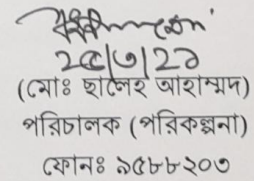 ২৫/৩/২১
(মোঃ ছালেহ আহাম্মদ)
পরিচালক (পরিকল্পনা)
ফোনঃ ৯৫৮৮২০৩